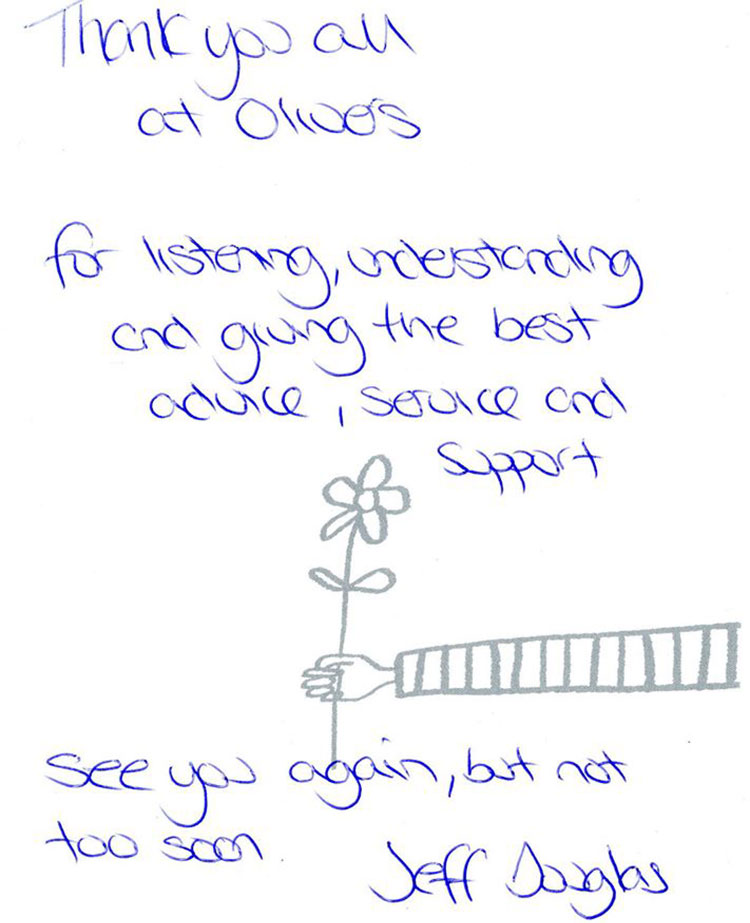 Thank you all
at Olive's
for listening, understanding
and giving the best
advice, service and
support
see you again, but not
too soon.
Jeff Douglas